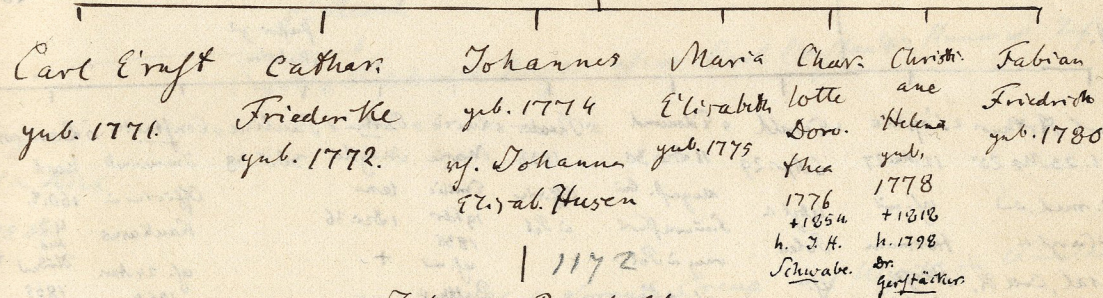 Carl Ernst
geb. 1771.
Cathar.
Friederike
geb. 1772.
Johannes
geb. 1774
vh. Johanna
Elisab. Husen
1172
Maria
Elisabeth
geb. 1775
Char.
lotte
Doro.
thea
1776
+1854
h. J. H.
Schwabe.
Christi.
ane
Helena
geb.
1778
+1818
h. 1798
Dr.
Gerstäcker.
Fabian
Friedrich
geb. 1780